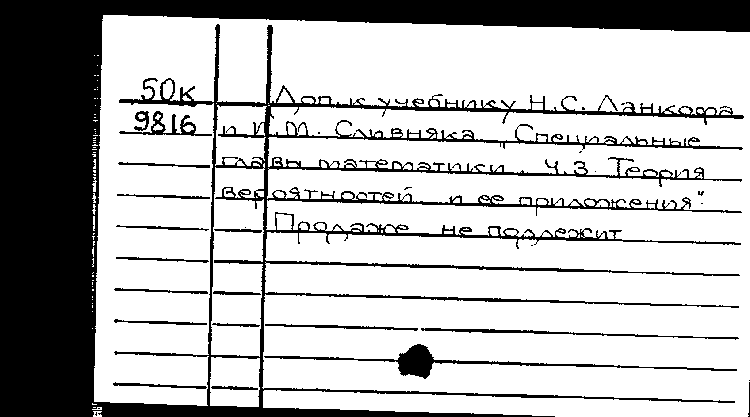 50к Доп. к учебнику Н.С. Ланкофа
9816 и И.М. Сливняка „Специальные
главы математики. Ч.3. Теория
вероятностей и ее приложения".
Продаже не подлежит